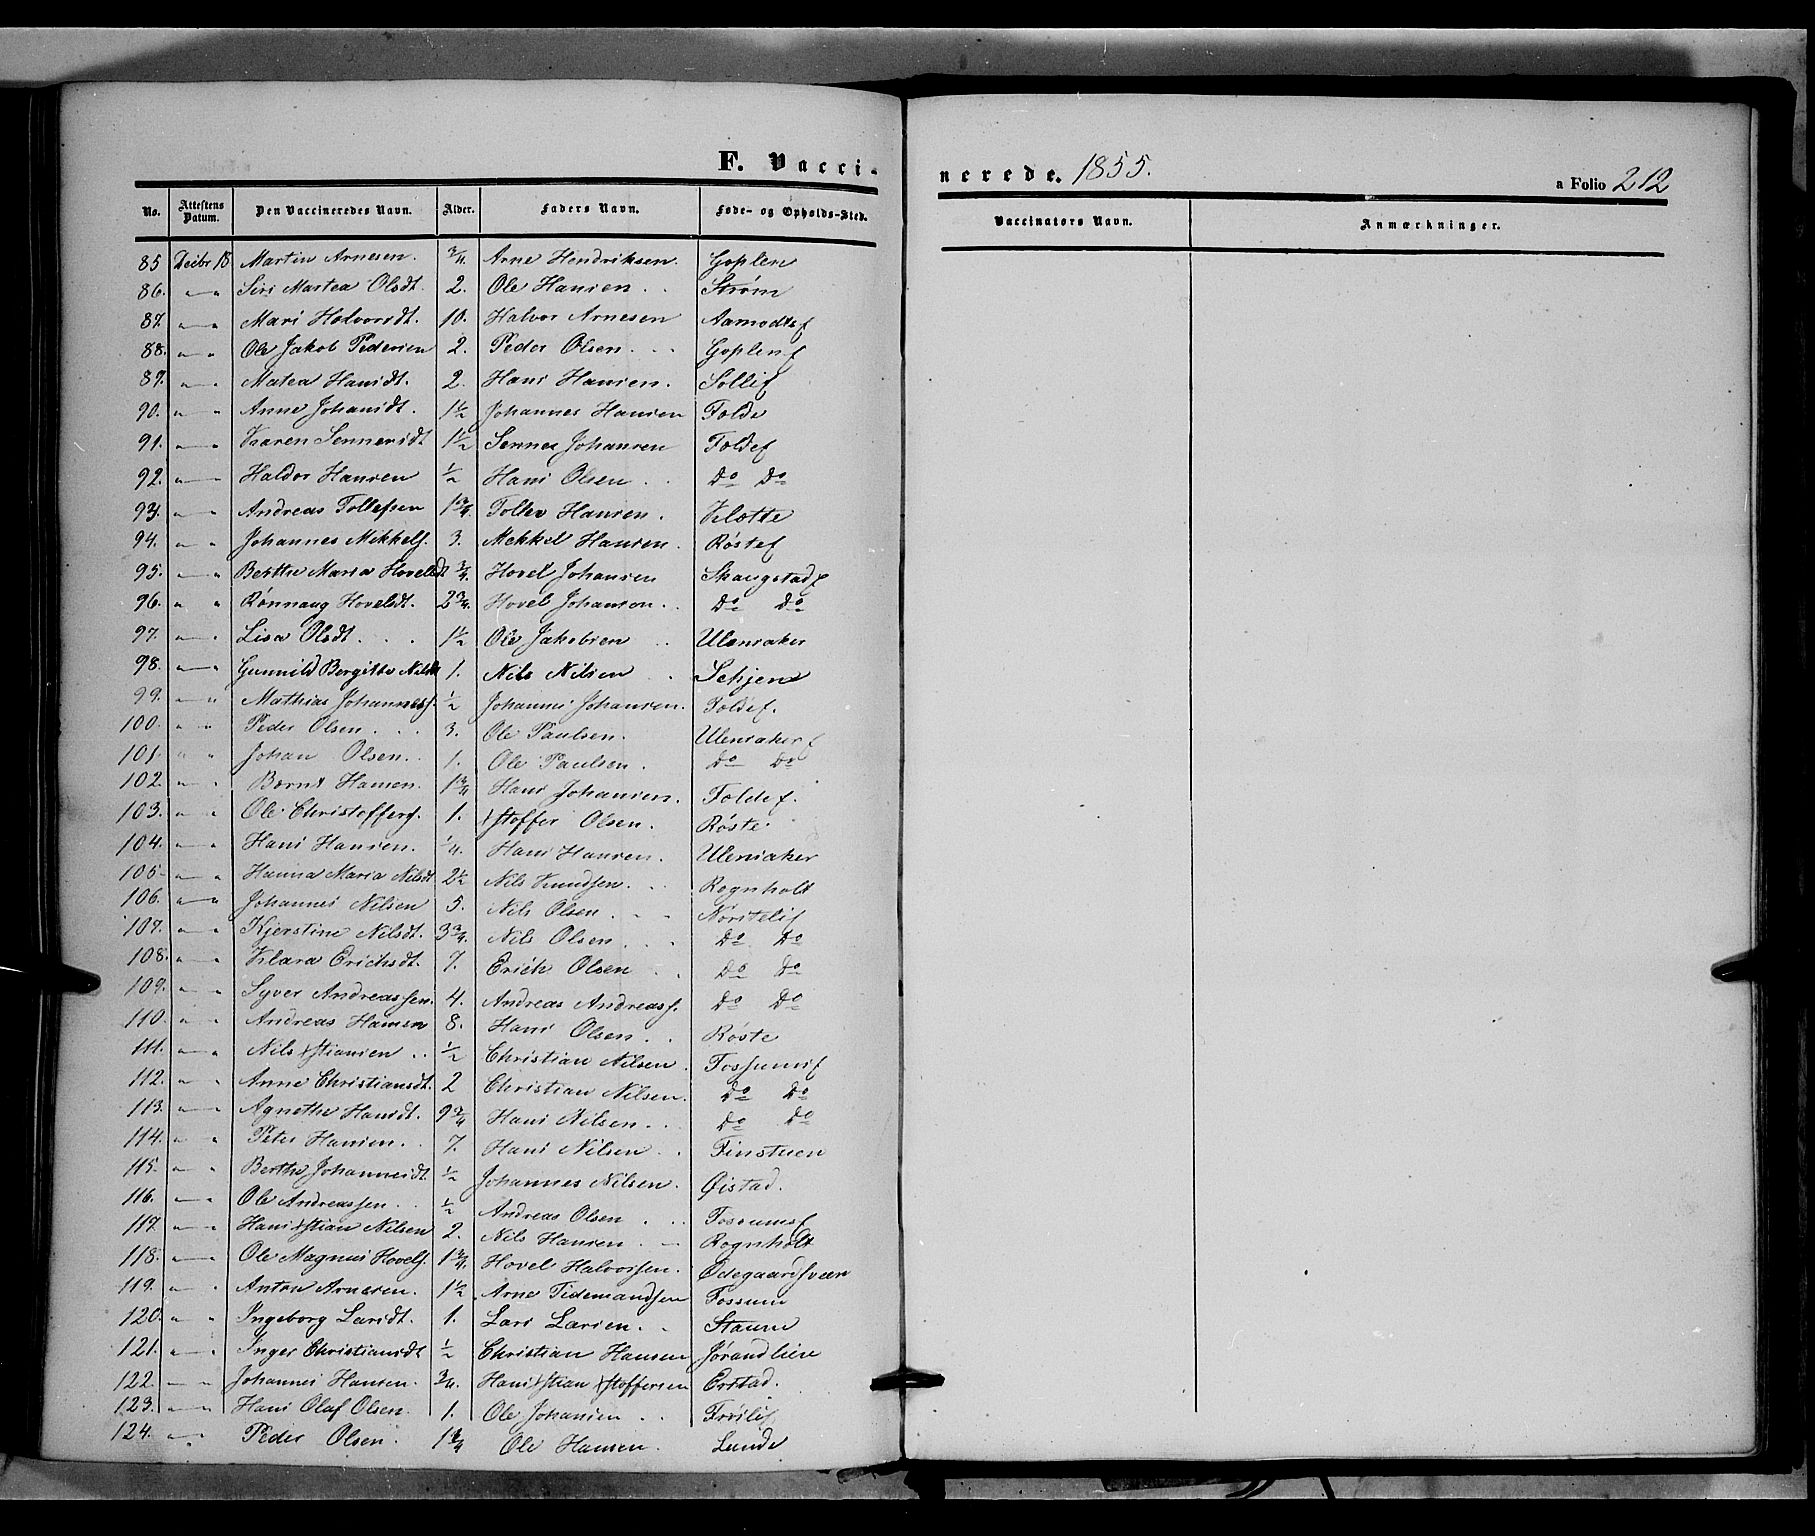 F. Vacci-
nerede. 1855.
a Folio 212
No. Attestens Datum. Den Vaccineredes Navn. Alder. Faders Navn. Føde- og Opholds-Sted.
Vaccinators Navn. Anmærkninger.
85 Decbr 18 Martin Arnesen. 3/4 Arne Hendriksen. Goplen
86. " " Siri Martea Olsdt. 2. Ole Hansen . . Strøm
87. " " Mari Halvorsdt. 10. Halvor Arnesen Aamodtsf
88. " " Ole Jakob Pedersen 2. Peder Olsen. . . Goplenf
89. " " Matea Hansdt. 2. Hans Hansen. Sollif
90. " " Anne Johansdt. 1 1/2 Johannes Hansen Folde
91. " " Karen Sennersdt 1 1/2 Senner Johansen Foldef
92. " " Haldor Hansen 1/2 Hans Olsen . . Do Do
93. " " Andreas Tollefsen 1 3/4. Tollev Hansen. Klætte
94. " " Johannes Mikkels. 3. Mekkel Hansen. Røstef
95. " " Berthe Maria Hovelsdt 3/4. Hovel Johansen Skaugstadf
96. " " Rønnaug Hovelsdt. 2 3/4. Hovel Johansen . . Do Do
97. " " Lisa Olsdt . . . 1 1/2 Ole Jakobsen . . Ulensaker
98. " " Gunnild Bergitte Nilsdt 1. Nils Nilsen . . Schjen
99. " " Mathias Johanness. 1/2 Johannes Johansen. Foldef.
100. " " Peder Olsen . . . 3. Ole Paulsen. Ulensakerf
101. " " Johan Olsen . . 1. Ole Paulsen . Do Do
102. " " Bernt Hansen. 1 3/4 Hans Johansen. Foldef.
103. " " Ole Christoffers. 1. Xstoffer Olsen. Røste
104. " " Hans Hansen. 1/4. Hans Hansen. Ulensaker
105. " " Hanna Maria Nilsdt 2 1/2 Nils Knudsen. . . Rognholt
106. " " Johannes Nilsen 5. Nils Olsen . . . Norstelif
107. " " Kjerstine Nilsdt. 3 3/4. Nils Olsen . . . Do Do
108. " " Klara Erichsdt. 7. Erich Olsen . . Do Do
109. " " Syver Andreassen. 4. Andreas Andreass. Do Do
110. " " Andreas Hansen 8. Hans Olsen . . Røste
111. " " Nils Xstiansen . . 1/2 Christian Nilsen Fossumsf
112. " " Anne Christiansdt. 2 Christian Nilsen. Do Do
113. " " Agnethe Hansdt. 9 3/4 Hans Nilsen . . . Do Do
114. " " Peter Hansen. . 7. Hans Nilsen . . Finstuen
115. " " Berthe Johannesdt. 1/2 Johannes Nilsen. Øistad.
116. " " Ole Andreassen . . 1/2 Andreas Olsen . . . Fossumsf
117. " " Hans Xstian Nilsen 2. Nils Hansen . . Rognholt
118. " " Ole Magnus Hovels. 1 3/4. Hovel Halvorsen. Ødegaardsveen
119. " " Anton Arnesen. 1 1/2 Arne Tidemandsen Fossum
120. " " Ingeborg Larsdt. 1. Lars Larsen. . Staum
121. " " Inger Christiansdt 1/2 Christian Hansen Jørandliese
122. " " Johannes Hansen. 3/4. Hans Xstian Xstoffersen Evstad.
123. " " Hans Olaf Olsen. 1. Ole Johansen . . Frøilif
124. " " Peder Olsen. 1 3/4 Ole Hansen. Lunde